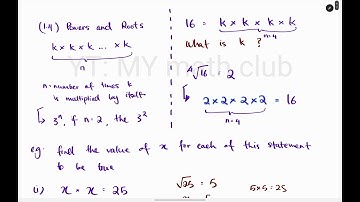 (1.4) Powers and Roots
k × k × k ... × k
n
n = number of times k
is multiplied by itself
↳ 3ⁿ, if n = 2, the 3²
16 = k × k × k × k
n=4
What is k ?
⁴√16 = 2
↳ 2 × 2 × 2 × 2 = 16
n=4
YT: MY math club
eg: find the value of x for each of this statement
to be true
(i) x × x = 25
√25 = 5
5×5 = 25